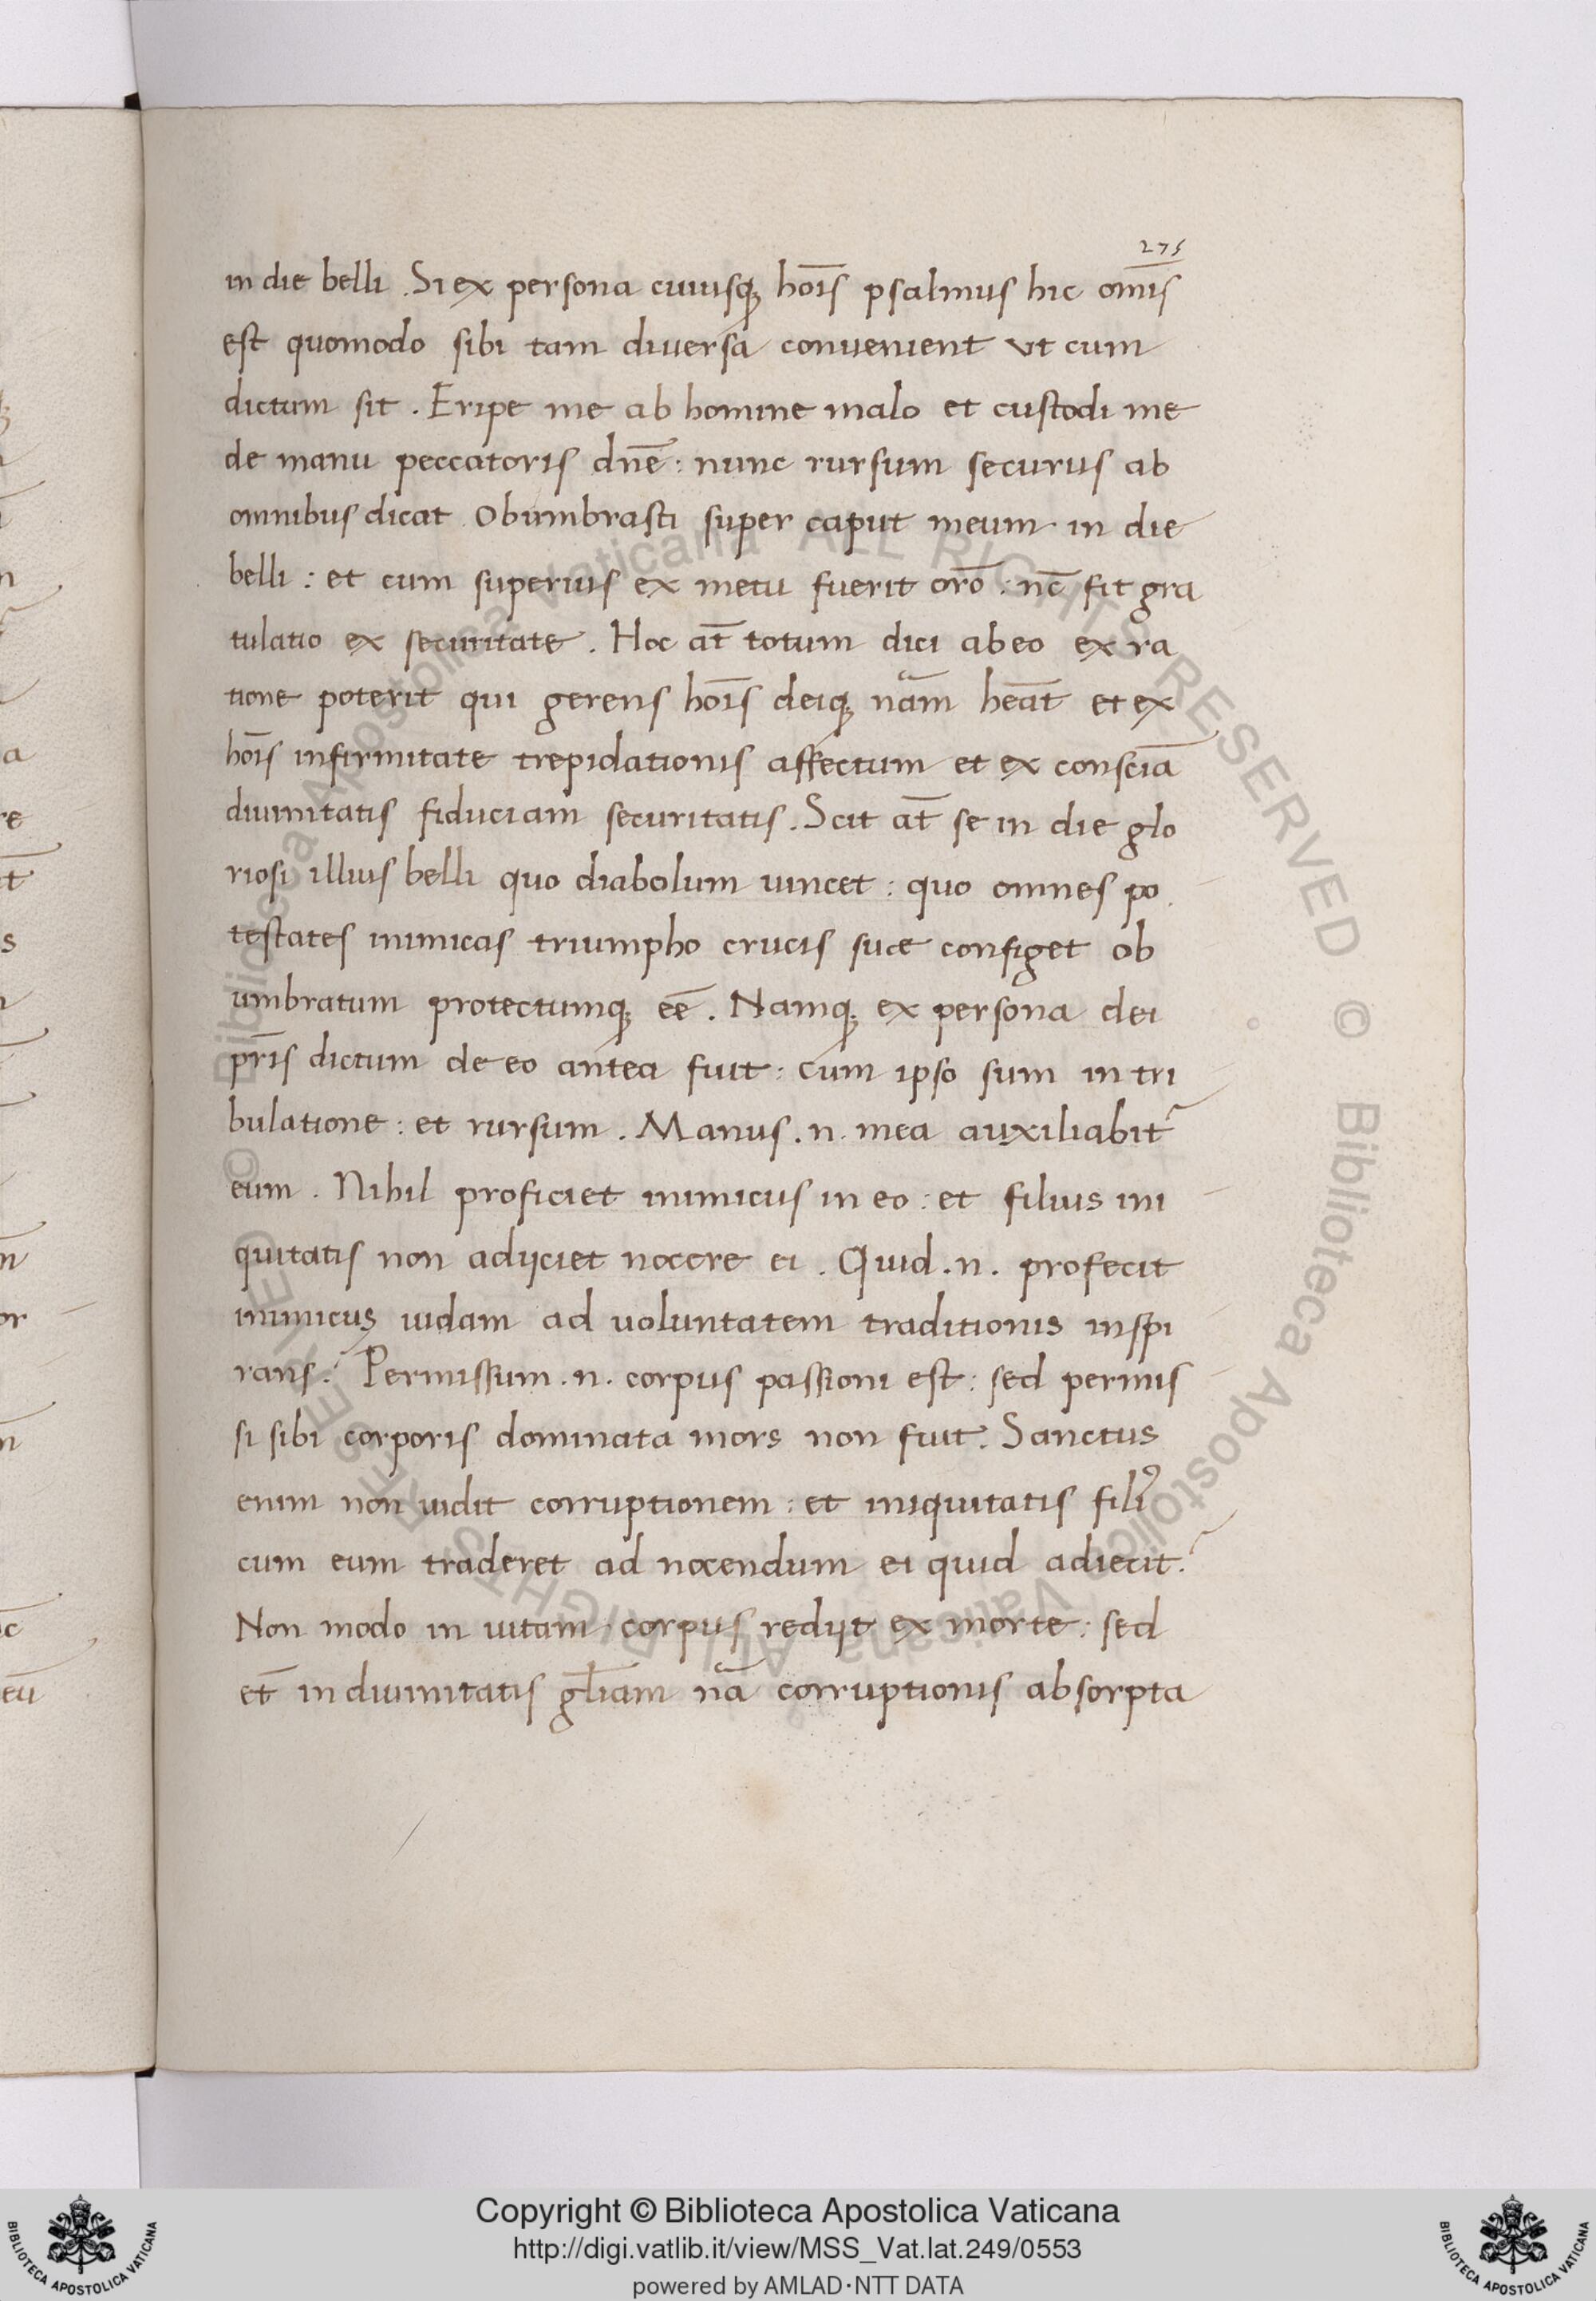 275
in die belli . Si ex persona cuiusq; hoīs psalmus hic omīs
est quomodo sibi tam diuersa conuenient vt cum
dictum sit . Eripe me ab homine malo et custodi me
de manu peccatoris dnē : nunc rursum securus ab
omnibus dicat Obumbrasti super caput meum in die
belli : et cum superius ex metu fuerit orō : nc̄ fit gra
tulatio ex securitate . Hoc at̄ totum dici ab eo ex ra
tione poterit qui gerens hoīs deiq; nām heāt et ex
hoīs infirmitate trepidationis affectum et ex consciā
diuinitatis fiduciam securitatis . Scit at̄ se in die glo
riosi illius belli quo diabolum uincet : quo omnes po
testates inimicas triumpho crucis suae configet ob
umbratum protectumq; eē . Namq; ex persona dei
pr̄is dictum de eo antea fuit : cum ipso sum in tri
bulatione : et rursum . Manus . n . mea auxiliabit̄
eum . Nihil proficiet inimicus in eo : et filius ini
quitatis non adijciet nocere ei . Quid . n . profecit
inimicus iudam ad uoluntatem traditionis inspi
rans ? Permissum . n . corpus passioni est : sed permis
si sibi corporis dominata mors non fuit . Sanctus
enim non uidit corruptionem : et iniquitatis fili⁹
cum eum traderet ad nocendum ei quid adiecit ?
Non modo in uitam corpus redijt ex morte : sed
et̄ in diuinitatis gl̄iam nā corruptionis absorpta
Copyright © Biblioteca Apostolica Vaticana
http://digi.vatlib.it/view/MSS_Vat.lat.249/0553
powered by AMLAD·NTT DATA